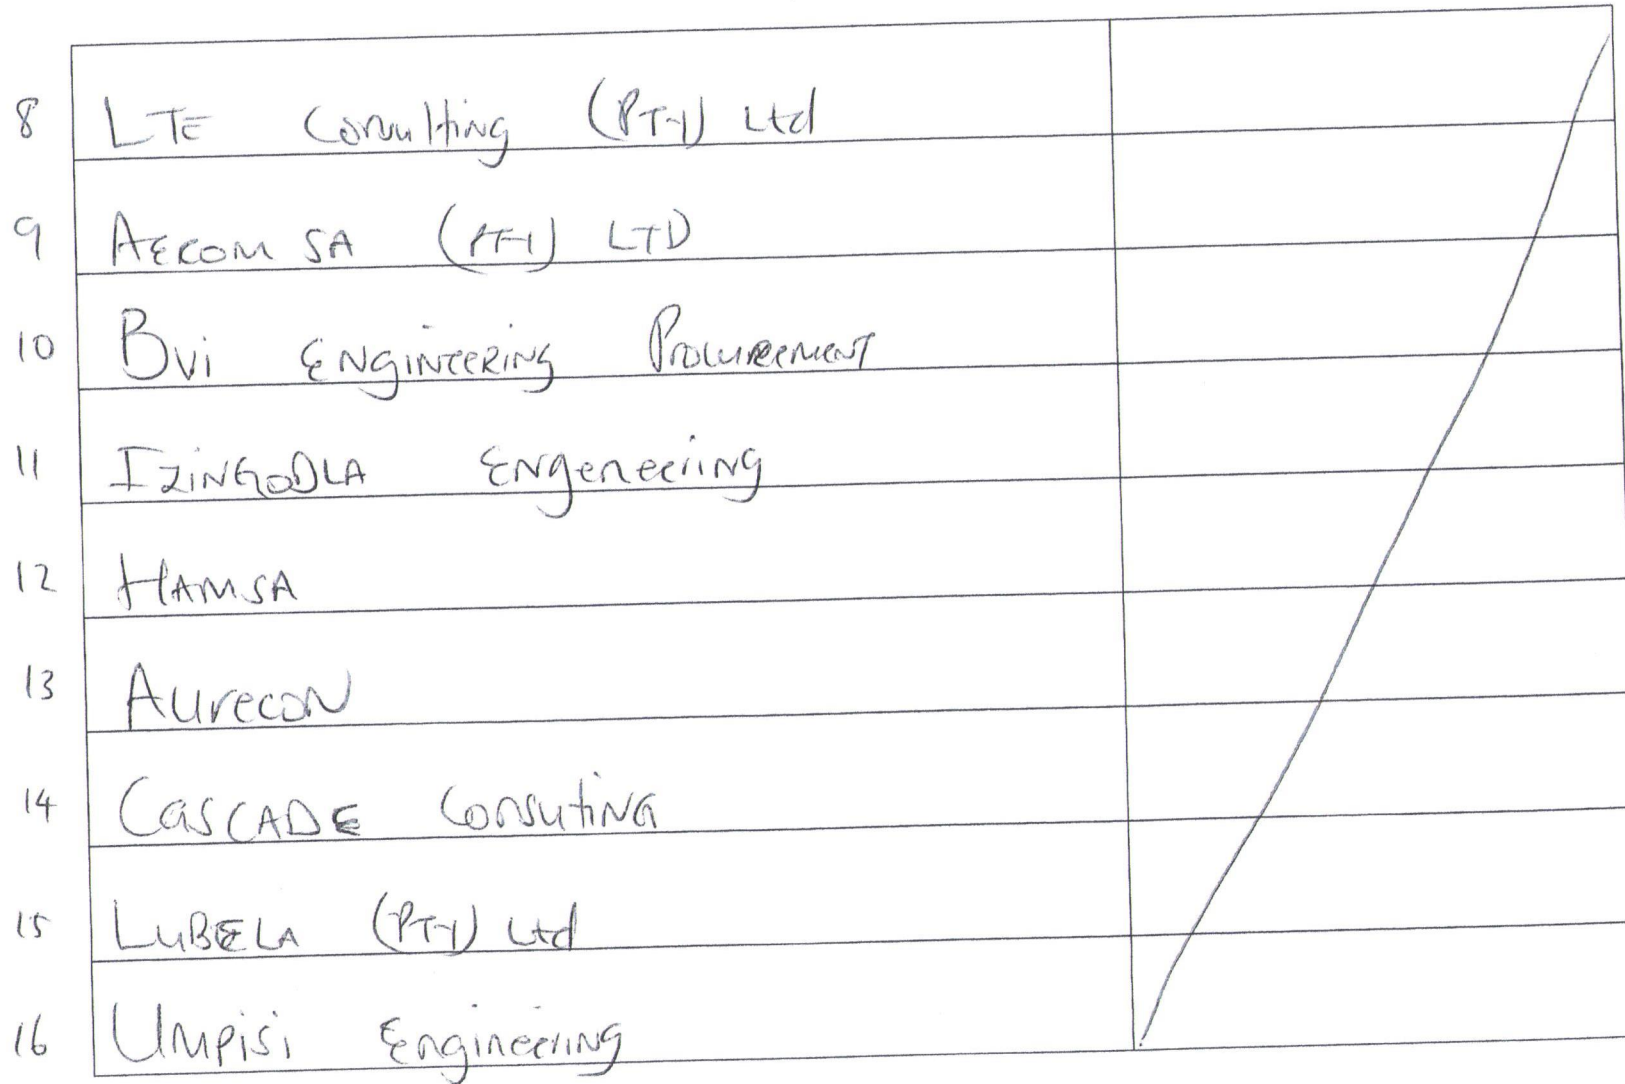 8 LTE Consulting (PTY) Ltd
9 AECOM SA (PTY) LTD
10 Bvi ENGINEERING PROCUREMENT
11 IZINGODLA ENgeneering
12 HAMSA
13 AUrecoN
14 CASCADE ConsutiNG
15 LUBELA (PTY) Ltd
16 UMPISI Engineering